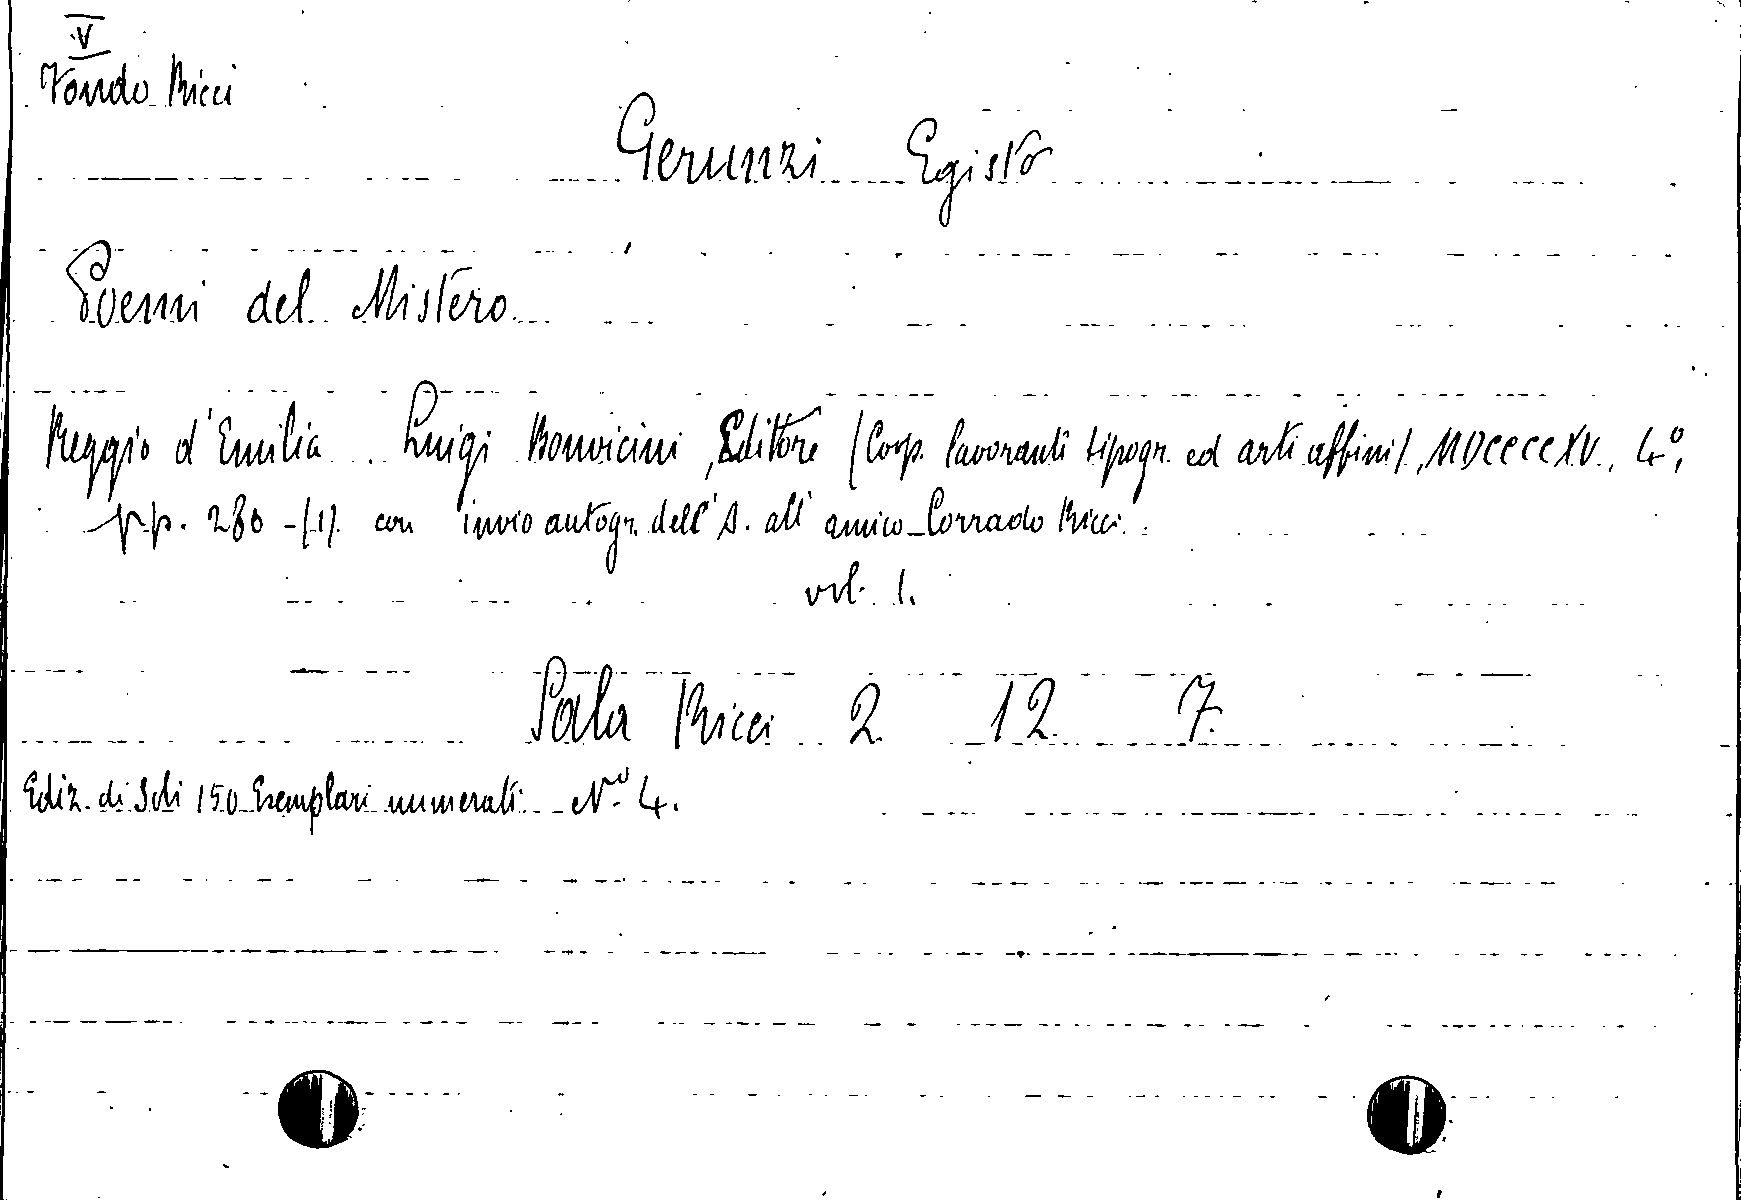 V
Fondo Ricci
Gerunzi Egisto
Poemi del Mistero
Reggio d'Emilia. Luigi Bonvicini, Editore (Coop. lavoranti tipogr. ed arti affini), MDCCCCXV, 4°,
pp. 280-(1). con invio autogr. dell'A. all'amico Corrado Ricci.
vol. 1.
Sala Ricci 2 12 7.
Ediz. di soli 150 Esemplari numerati N.° 4.